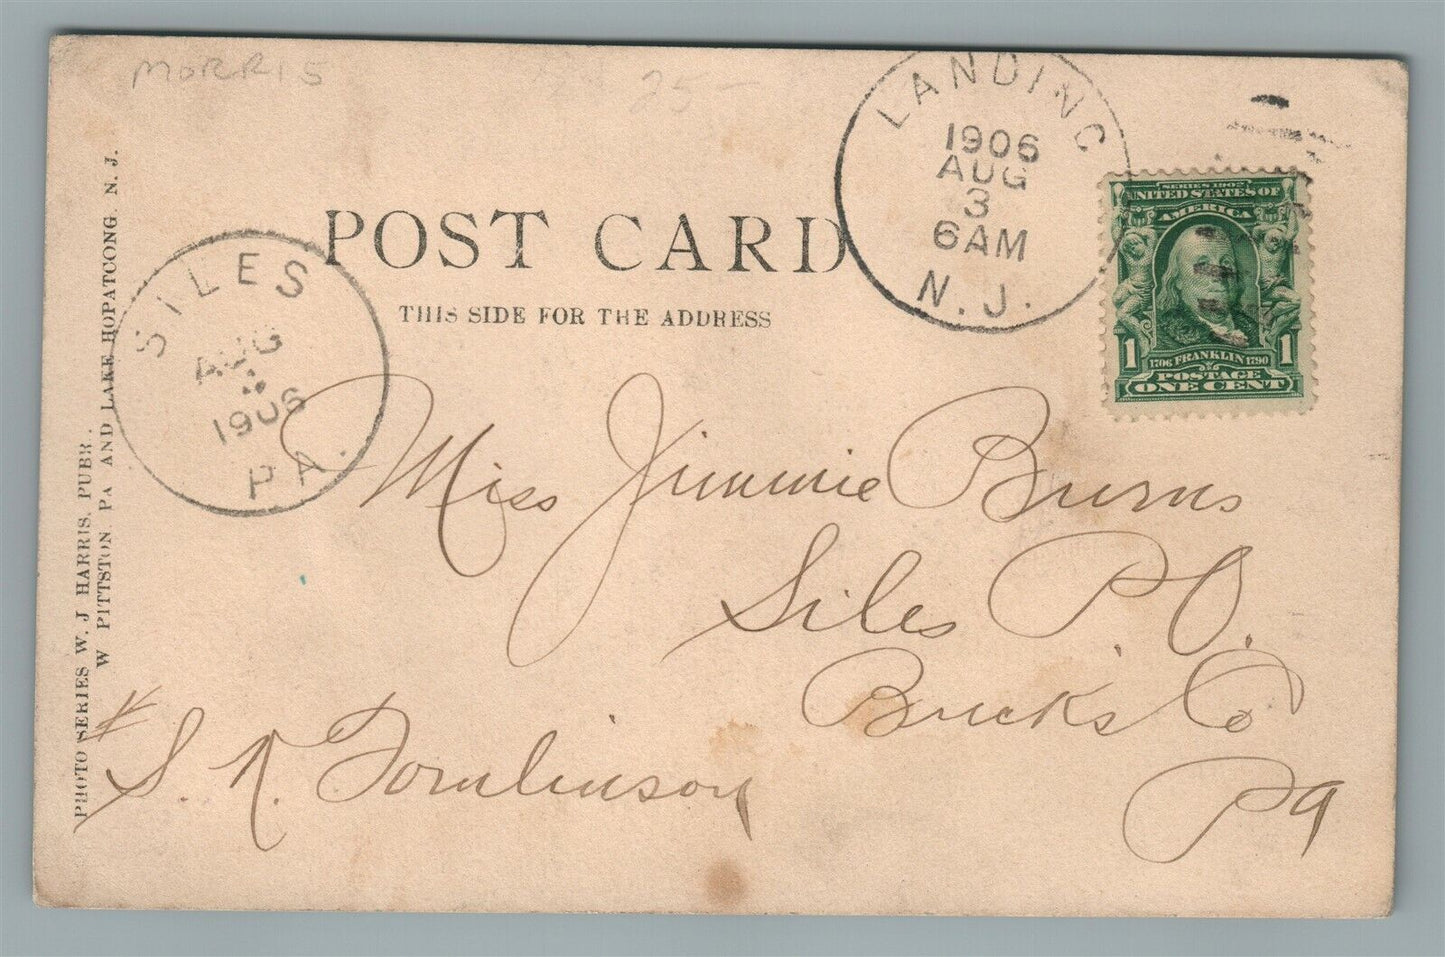 MORRIS 25 -
LANDING
1906
AUG
3
6 AM
N. J.
SERIES 1902
UNITED STATES OF
AMERICA
1 1
1706 FRANKLIN 1790
POSTAGE
ONE CENT
POST CARD
THIS SIDE FOR THE ADDRESS
SILES
AUG
1906
PA.
PHOTO SERIES W. J HARRIS, PUBR.
W PITTSTON, PA AND LAKE HOPATCONG, N. J.
Miss Jimmie Burns
Siles P.O.
Bucks Co
Pa
S. R. Tomlinson